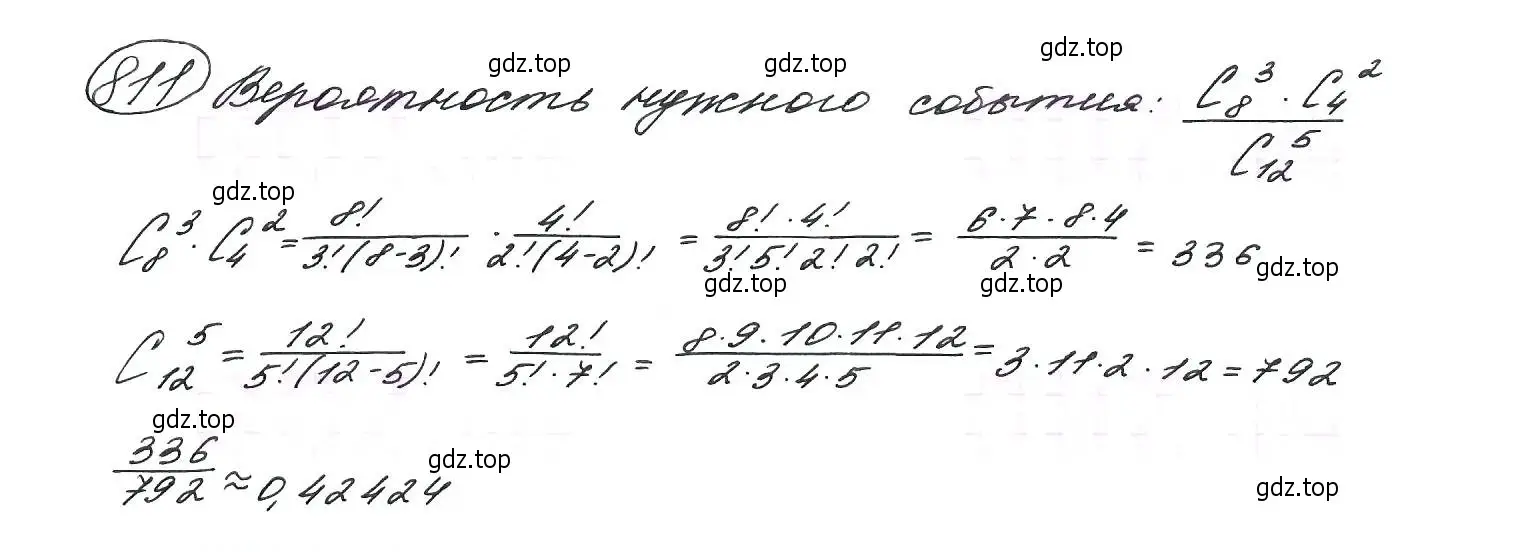 811 Вероятность нужного события: \frac{C_8^3 \cdot C_4^2}{C_{12}^5}
C_8^3 \cdot C_4^2 = \frac{8!}{3!(8-3)!} \cdot \frac{4!}{2!(4-2)!} = \frac{8! \cdot 4!}{3! 5! 2! 2!} = \frac{6 \cdot 7 \cdot 8 \cdot 4}{2 \cdot 2} = 336
C_{12}^5 = \frac{12!}{5!(12-5)!} = \frac{12!}{5! \cdot 7!} = \frac{8 \cdot 9 \cdot 10 \cdot 11 \cdot 12}{2 \cdot 3 \cdot 4 \cdot 5} = 3 \cdot 11 \cdot 2 \cdot 12 = 792
\frac{336}{792} ≈ 0,42424
gdz.top
gdz.top
gdz.top
gdz.top
gdz.top
gdz.top
gdz.top
gdz.top
gdz.top
gdz.top